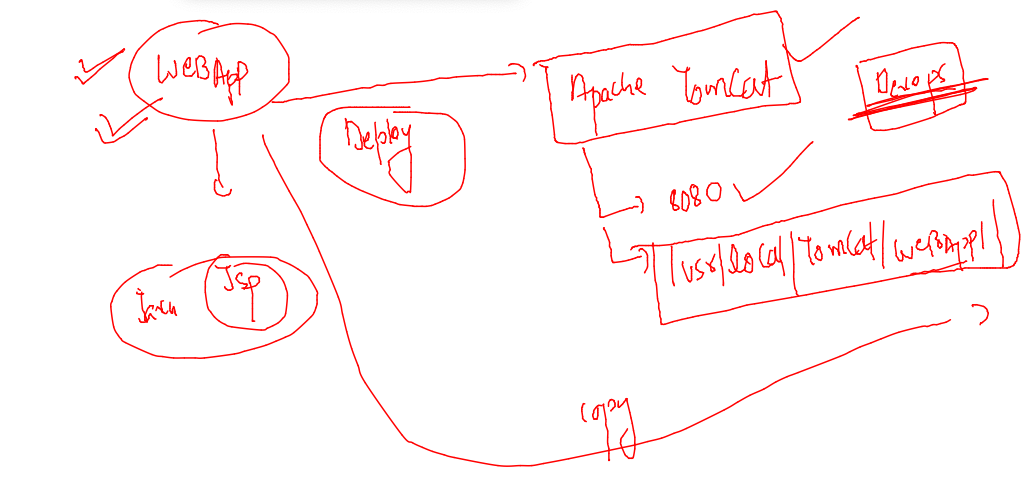 WEBApp
Apache Tomcat
Devops
Deploy
8080
/usr/local/Tomcat/WEBApp/
Java
Jsp
Copy